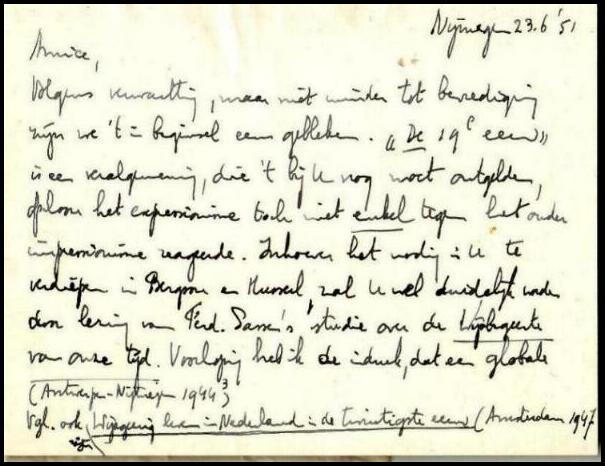 Nijmegen 23.6 '51
Amice,
Volgens verwachting, maar niet minder tot bevrediging
zijn we 't in beginsel eens gebleken. „De 19e eeuw”
is een veralgemening, die 't bij U nog moet ontgelden,
ofschoon het expressionisme toch niet enkel tegen het ouder
impressionisme reageerde. Inhoever het nodig is U te
verdiepen in Bergson en Husserl, zal U wel duidelijk worden
door lezing van Ferd. Sassen's studie over de Wijsbegeerte
van onze tijd. Voorlopig heb ik de indruk, dat een globale
(Antwerpen-Nijmegen 1944³)
Vgl. ook Wijsgerig leven in Nederland in de twintigste eeuw (Amsterdam 1947
zijn